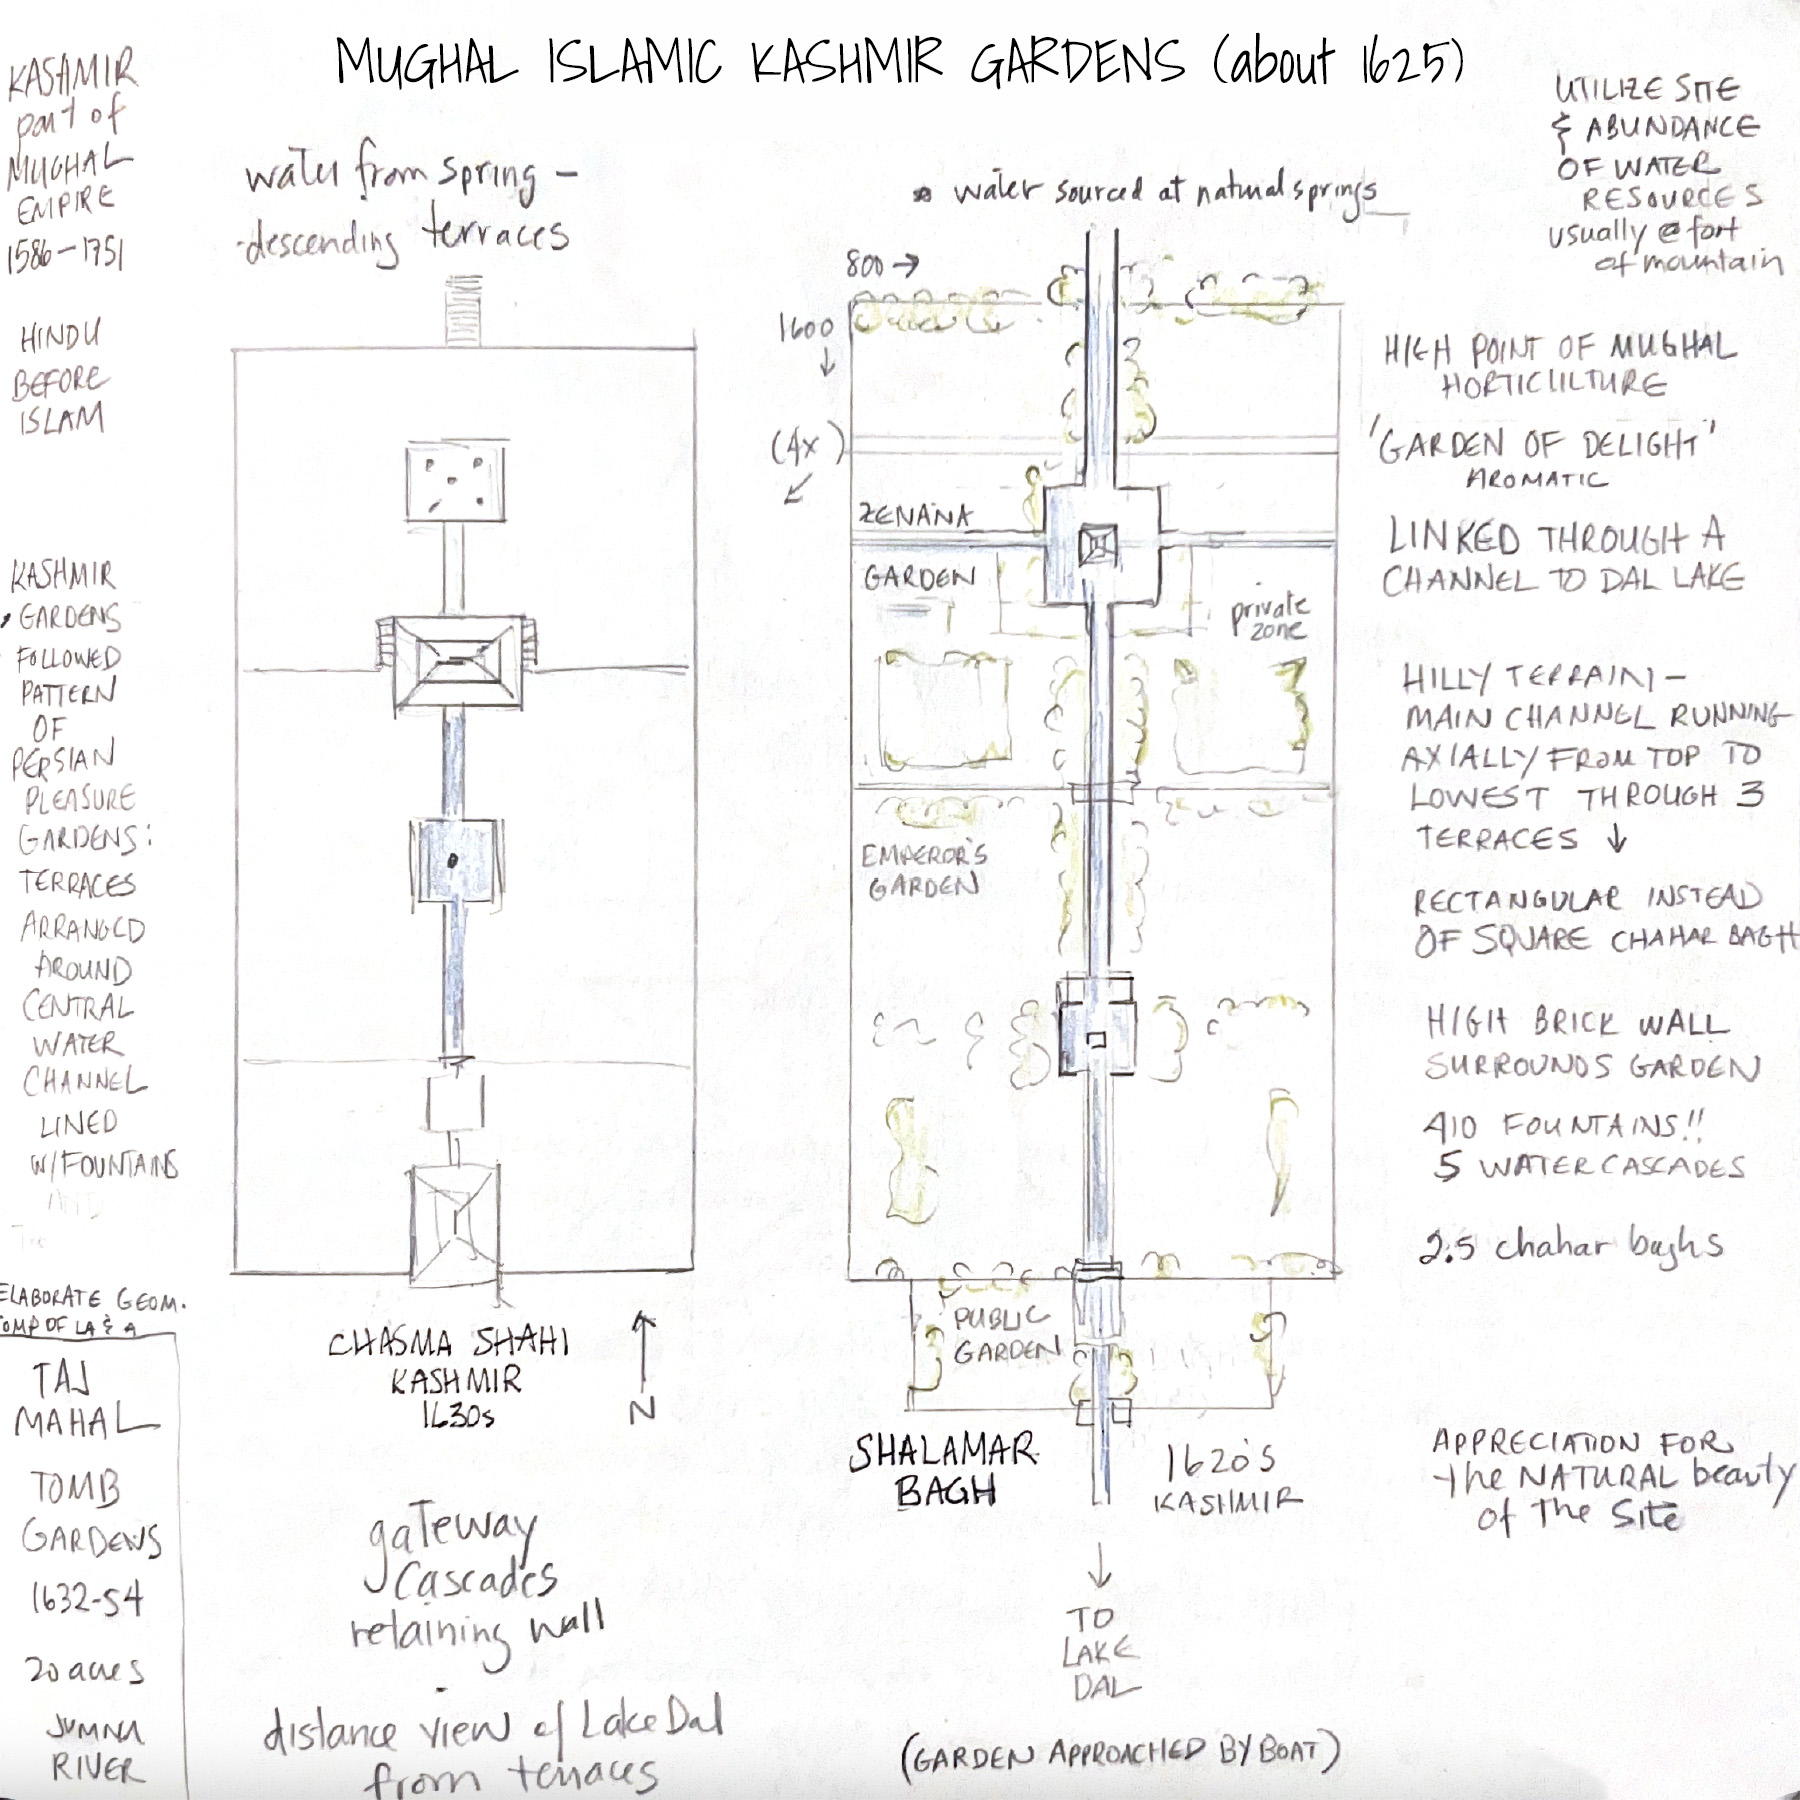 MUGHAL ISLAMIC KASHMIR GARDENS (about 1625)
KASHMIR
part of
MUGHAL
EMPIRE
1586-1751
HINDU
BEFORE
ISLAM
KASHMIR
GARDENS
FOLLOWED
PATTERN
OF
PERSIAN
PLEASURE
GARDENS:
TERRACES
ARRANGED
AROUND
CENTRAL
WATER
CHANNEL
LINED
W/FOUNTAINS
AND
ELABORATE GEOM.
COMP OF LA & A
TAJ
MAHAL
TOMB
GARDENS
1632-54
20 acres
JUMNA
RIVER
water from spring -
-descending terraces
CHASMA SHAHI
KASHMIR
1630s
N
gateway
Cascades
retaining wall
distance view of Lake Dal
from terraces
water sourced at natural springs
800 →
1600
↓
(4x)
↙
ZENANA
GARDEN
private
zone
EMPEROR'S
GARDEN
PUBLIC
GARDEN
SHALAMAR
BAGH
1620'S
KASHMIR
↓
TO
LAKE
DAL
(GARDEN APPROACHED BY BOAT)
UTILIZE SITE
& ABUNDANCE
OF WATER
RESOURCES
usually @ fort
of mountain
HIGH POINT OF MUGHAL
HORTICULTURE
'GARDEN OF DELIGHT'
AROMATIC
LINKED THROUGH A
CHANNEL TO DAL LAKE
HILLY TERRAIN -
MAIN CHANNEL RUNNING
AXIALLY FROM TOP TO
LOWEST THROUGH 3
TERRACES ↓
RECTANGULAR INSTEAD
OF SQUARE CHAHAR BAGH
HIGH BRICK WALL
SURROUNDS GARDEN
410 FOUNTAINS!!
5 WATER CASCADES
2.5 chahar baghs
APPRECIATION FOR
the NATURAL beauty
of The Site